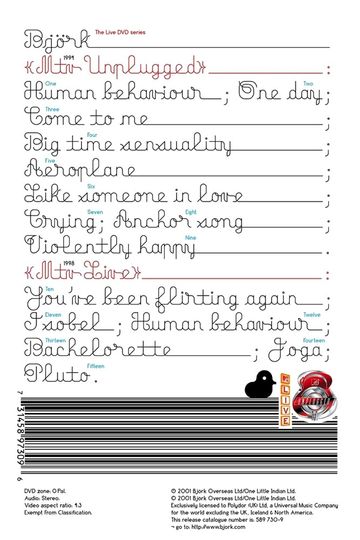 Björk The Live DVD series
1994
«Mtv Unplugged» :
One Two
Human behaviour ; One day;
Three
Come to me :
Four
Big time sensuality ;
Five
Aeroplane ;
Six
Like someone in love ;
Seven Eight
Crying; Anchor song ;
Nine
Violently happy .
1998
«Mtv Live» :
Ten
You've been flirting again ;
Eleven Twelve
Isobel ; Human behaviour ;
Thirteen Fourteen
Bachelorette ; Joga;
Fifteen
Pluto.
LIVE
7 31458 97309 6
DVD zone: 0 Pal.
Audio: Stereo.
Video aspect ratio: 4:3
Exempt from Classification.
℗ 2001 Bjork Overseas Ltd/One Little Indian Ltd.
© 2001 Bjork Overseas Ltd/One Little Indian Ltd.
Exclusively licensed to Polydor (UK) Ltd, a Universal Music Company
for the world excluding the UK, Iceland & North America.
This release catalogue number is: 589 730-9
¬ go to: http://www.bjork.com